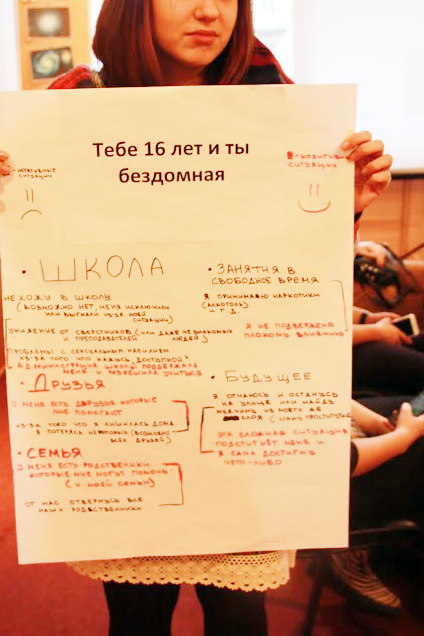 Тебе 16 лет и ты
бездомная
- негативные
ситуации
- позитивные
ситуации
• ШКОЛА
Не хожу в школу
(возможно нет, меня исключили
или выгнали из-за моей
ситуации)
унижение от сверстников (или даже незнакомых
и преподавателей людей)
проблемы с сексуальным насилием
из-за того что кажусь "доступной"
администрация школы поддержала
меня и разрешила учиться
• Друзья
у меня есть друзья которые
мне помогают
из-за того что я лишилась дома
я потеряла некоторых (возможно
всех друзей)
• СЕМЬЯ
у меня есть родственники
которые мне могут помочь
(и моей семье)
от нас отвернулись все
наши родственники
• Занятия в
свободное время
я принимаю наркотики
(алкоголь)
и т.д.
я не подвержена
плохому влиянию
• Будущее
я отчаюсь и останусь
на улице или найду
мужчину из моего же
слоя (стану проституткой)
эта сложная ситуация
подстигнёт меня и
я сама достигну
чего-либо